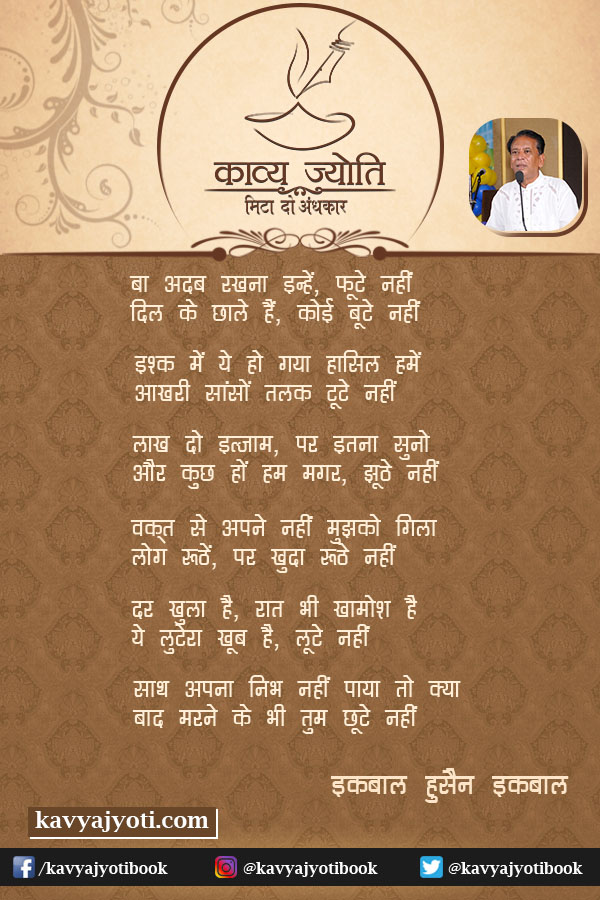 काव्य ज्योति
मिटा दो अंधकार
बा अदब रखना इन्हें, फूटे नहीं
दिल के छाले हैं, कोई बूटे नहीं
इश्क में ये हो गया हासिल हमें
आखरी सांसों तलक टूटे नहीं
लाख दो इल्जाम, पर इतना सुनो
और कुछ हों हम मगर, झूठे नहीं
वक्त से अपने नहीं मुझको गिला
लोग रूठें, पर खुदा रूठे नहीं
दर खुला है, रात भी खामोश है
ये लुटेरा खूब है, लूटे नहीं
साथ अपना निभ नहीं पाया तो क्या
बाद मरने के भी तुम छूटे नहीं
इकबाल हुसैन इकबाल
kavyajyoti.com
/kavyajyotibook
@kavyajyotibook
@kavyajyotibook